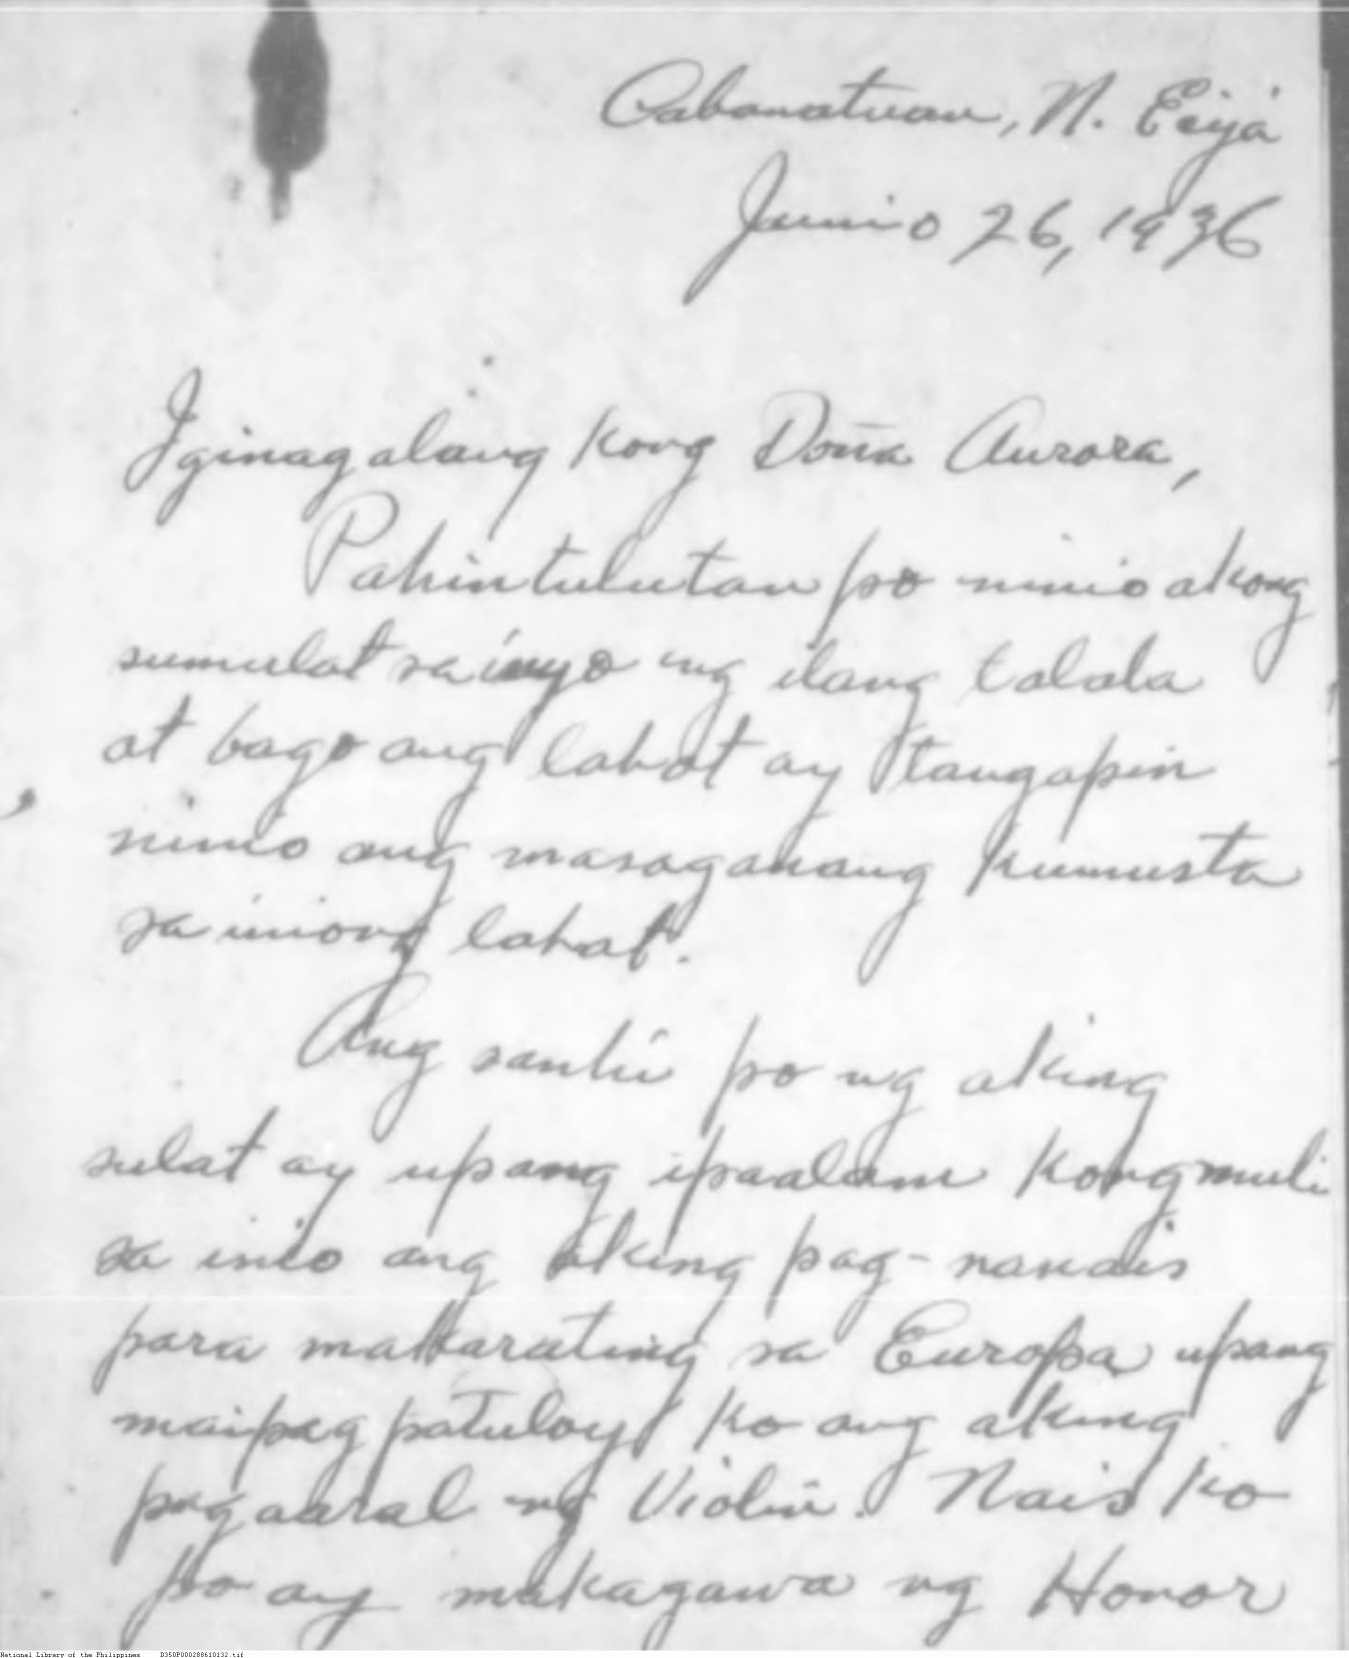 Cabanatuan, N. Ecija
Junio 26, 1936
Iginagalang kong Doña Aurora,
Pahintulutan po ninio akong
sumulat sa inyo ng ilang talata
at bago ang lahat ay tangapin
ninio ang masaganang kumusta
sa iniong lahat.
Ang sanhi po ng aking
sulat ay upang ipaalam kong muli
sa inio ang aking pag-nanais
para makarating sa Europa upang
maipagpatuloy ko ang aking
pagaaral ng Violin. Nais ko
po ay makagawa ng Honor
National Library of the Philippines D350P000288610132.tif